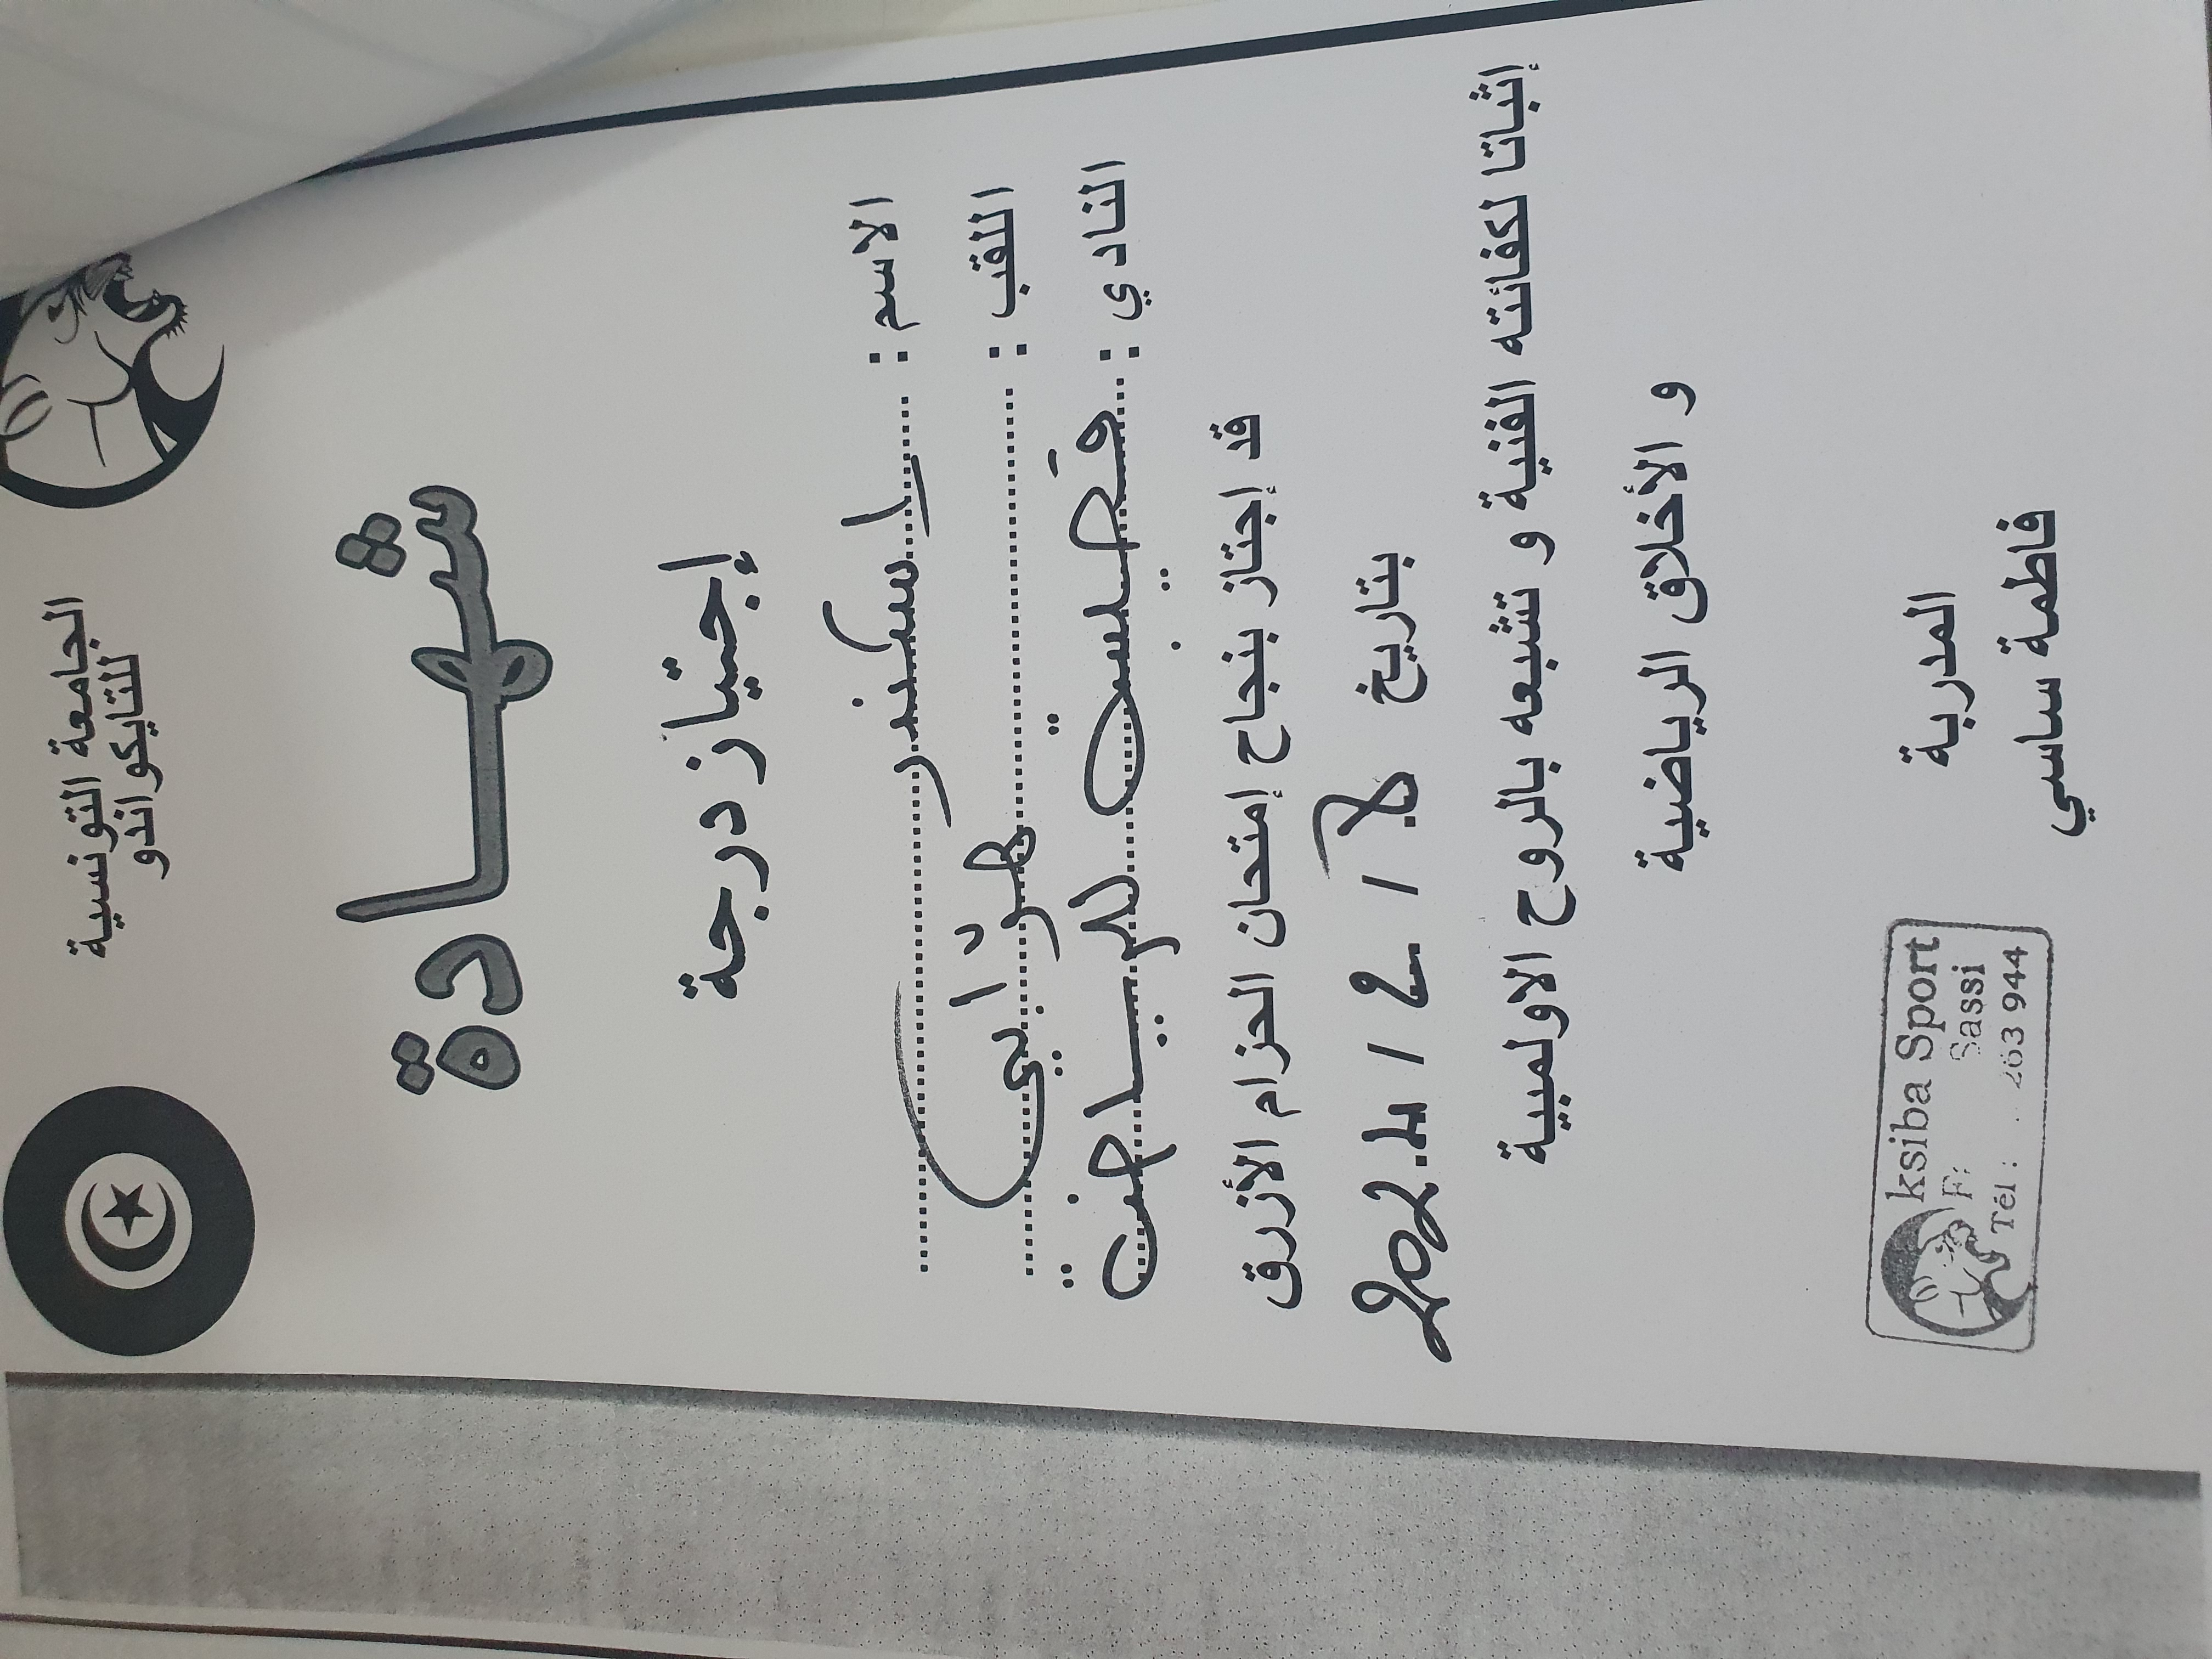 الجامعة التونسية
للتايكواندو
شهادة
إجتياز درجة
الاسم : اسكندر
اللقب :
النادي : قصيبة للرياضة
قد إجتاز بنجاح إمتحان الحزام الأزرق
بتاريخ
إثباتا لكفائته الفنية و تشبعه بالروح الاولمبية
و الأخلاق الرياضية
المدربة
فاطمة ساسي
ksiba Sport
Sassi
Tél : 263 944